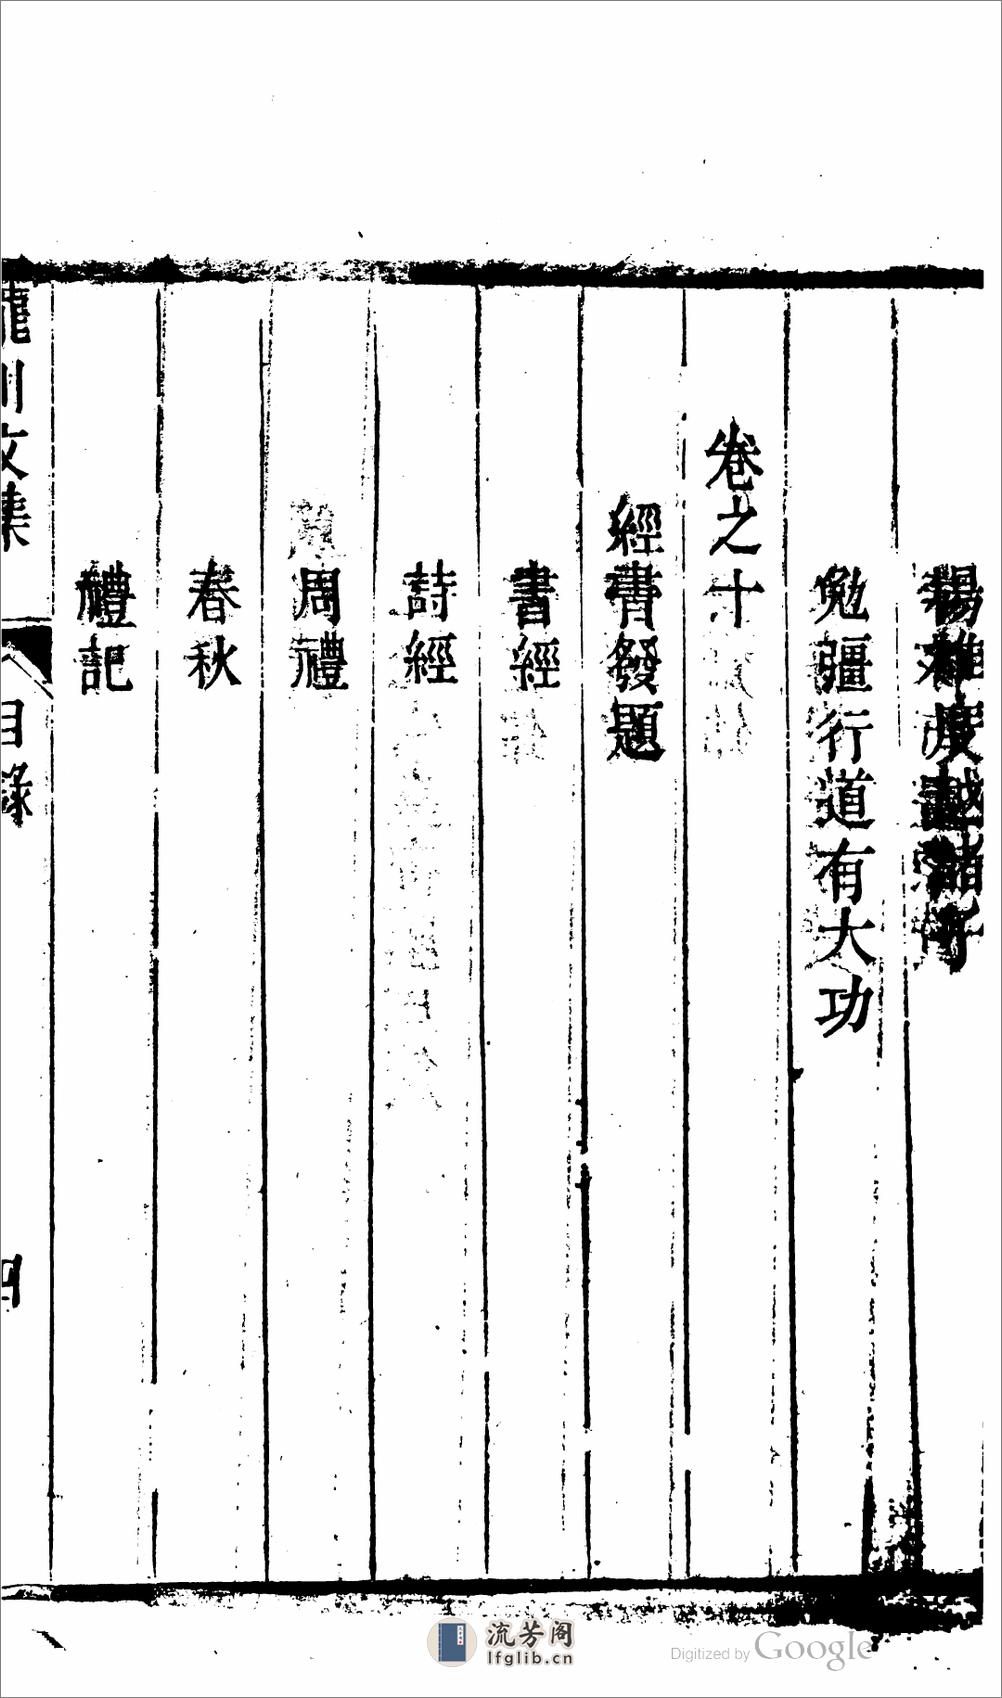 揚雄度越諸子
勉彊行道有大功
卷之十
經書發題
書經
詩經
周禮
春秋
禮記
龍川文集 目錄 四
流芳阁
lfglib.cn
Digitized by Google